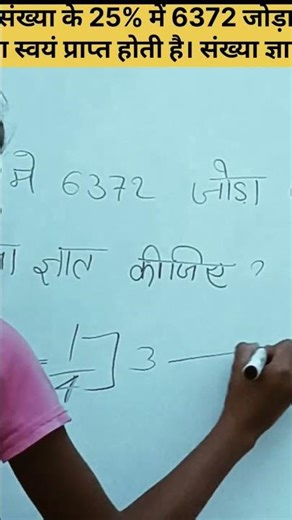 संख्या के 25% में 6372 जोड़ा
स्वयं प्राप्त होती है। संख्या
में 6372 जोड़ा
ज्ञात कीजिए ?
= 1/4] 3 —